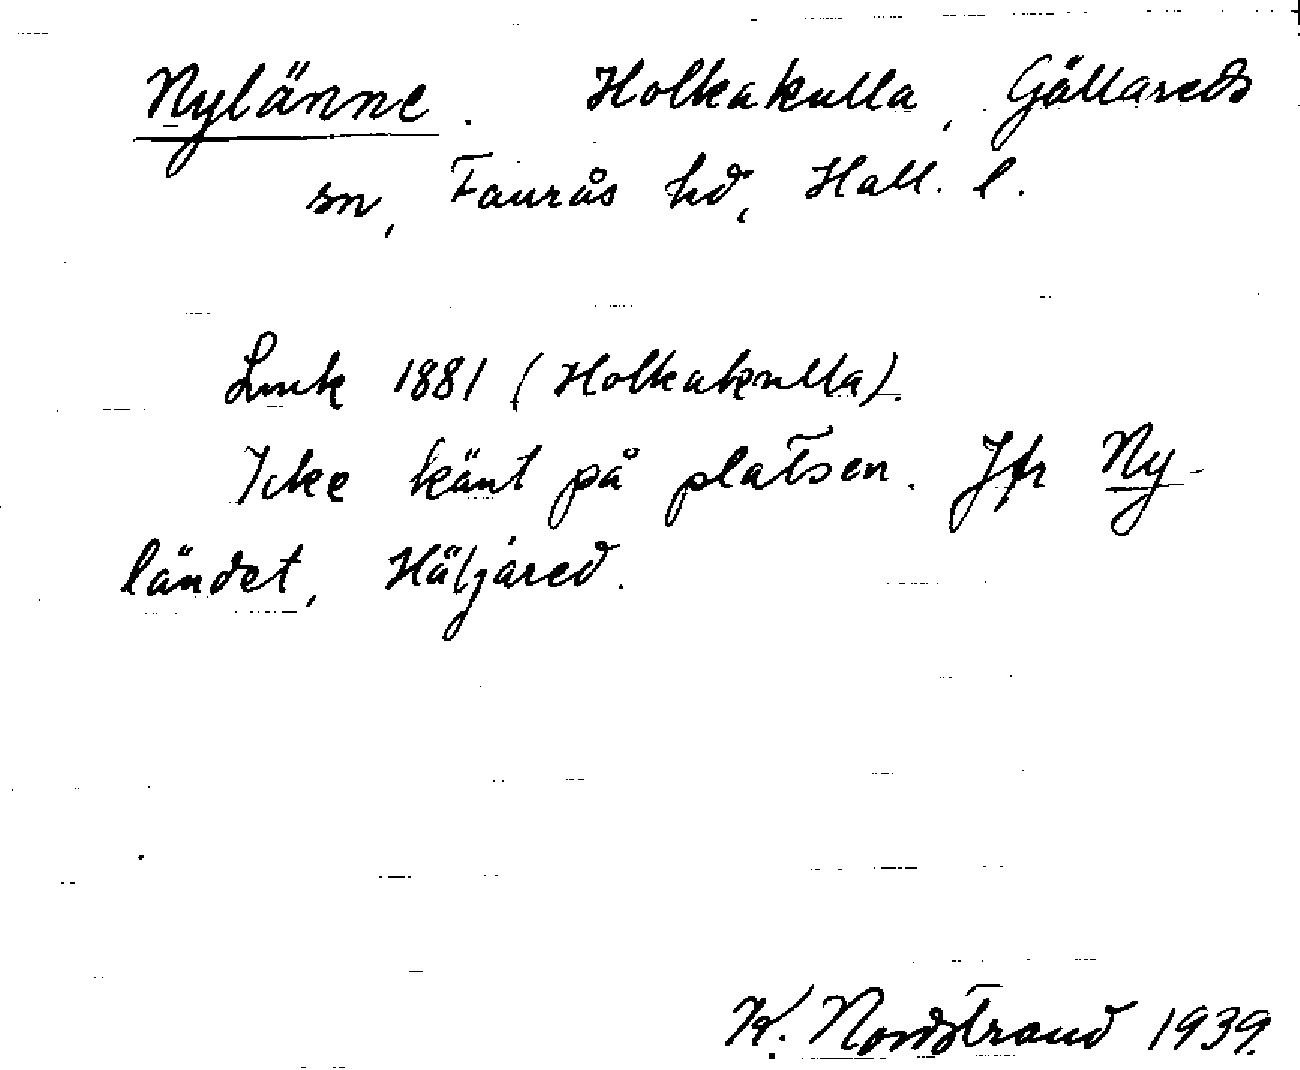 Nylänne. Holkakulla, Gällareds
sn, Faurås hd, Hall. l.
Lmk 1881 (Holkakulla).
Icke känt på platsen. Jfr Ny-
ländet, Häljared.
K. Nordstrand 1939.